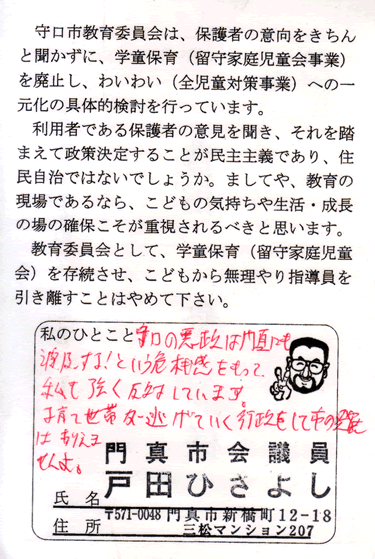 守口市教育委員会は、保護者の意向をきちん
と聞かずに、学童保育（留守家庭児童会事業）
を廃止し、わいわい（全児童対策事業）への一
元化の具体的検討を行っています。
利用者である保護者の意見を聞き、それを踏
まえて政策決定することが民主主義であり、住
民自治ではないでしょうか。ましてや、教育の
現場であるなら、こどもの気持ちや生活・成長
の場の確保こそが重視されるべきと思います。
教育委員会として、学童保育（留守家庭児童
会）を存続させ、こどもから無理やり指導員を
引き離すことはやめて下さい。
私のひとこと 守口の悪政は門真にも
波及する！という危機感をもって、
私も強く反対しています。
子育て世帯が逃げていく行政をして市の発展
はありえま
せんよ。
門真市会議員
氏名 戸田ひさよし
住所 〒571-0048 門真市新橋町12-18
三松マンション207